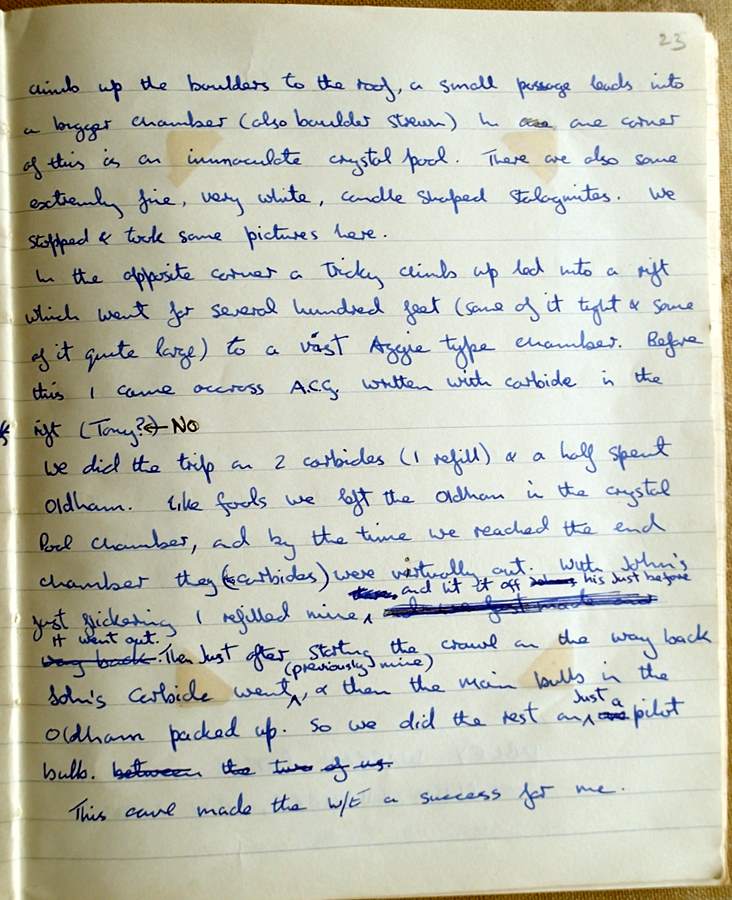 23
climb up the boulders to the roof, a small passage leads into
a bigger chamber (also boulder strewn) In one corner
of this is an immaculate crystal pool. There are also some
extremly fine, very white, candle shaped stalagmites. We
stopped & took some pictures here.
In the opposite corner a tricky climb up led into a rift
which went for several hundred feet (some of it tight & some
of it quite large) to a vast Aggie type chamber. Before
this I came accross A.C.G. written with carbide in the
rift (Tony?) ← No
We did the trip on 2 carbides (1 refill) & a half spent
Oldham. Like fools we left the Oldham in the crystal
Pool chamber, and by the time we reached the end
chamber they (carbides) were virtually out. With John's
and lit it off his just before
just flickering I refilled mine
it went out.
way back. Then Just after starting the crawl on the way back
(previously mine)
John's Carbide went, & then the main bulb in the
Just a
Oldham packed up. So we did the rest on pilot
bulb. between the two of us.
This cave made the W/E a success for me.